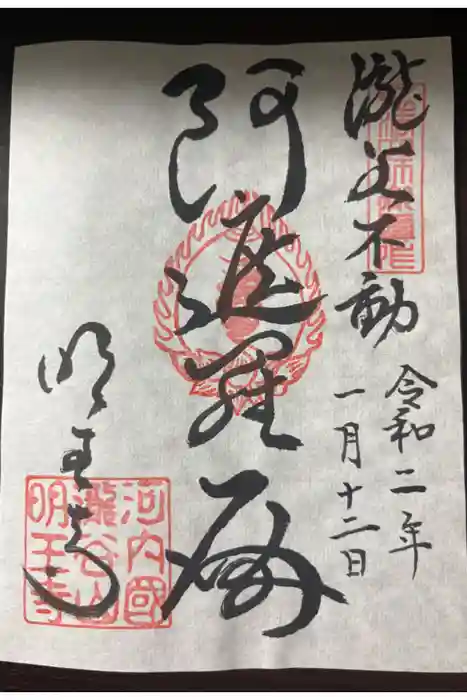 瀧谷不動
令和二年
一月十二日
阿遮羅
明王寺
河内國
瀧谷山
明王寺